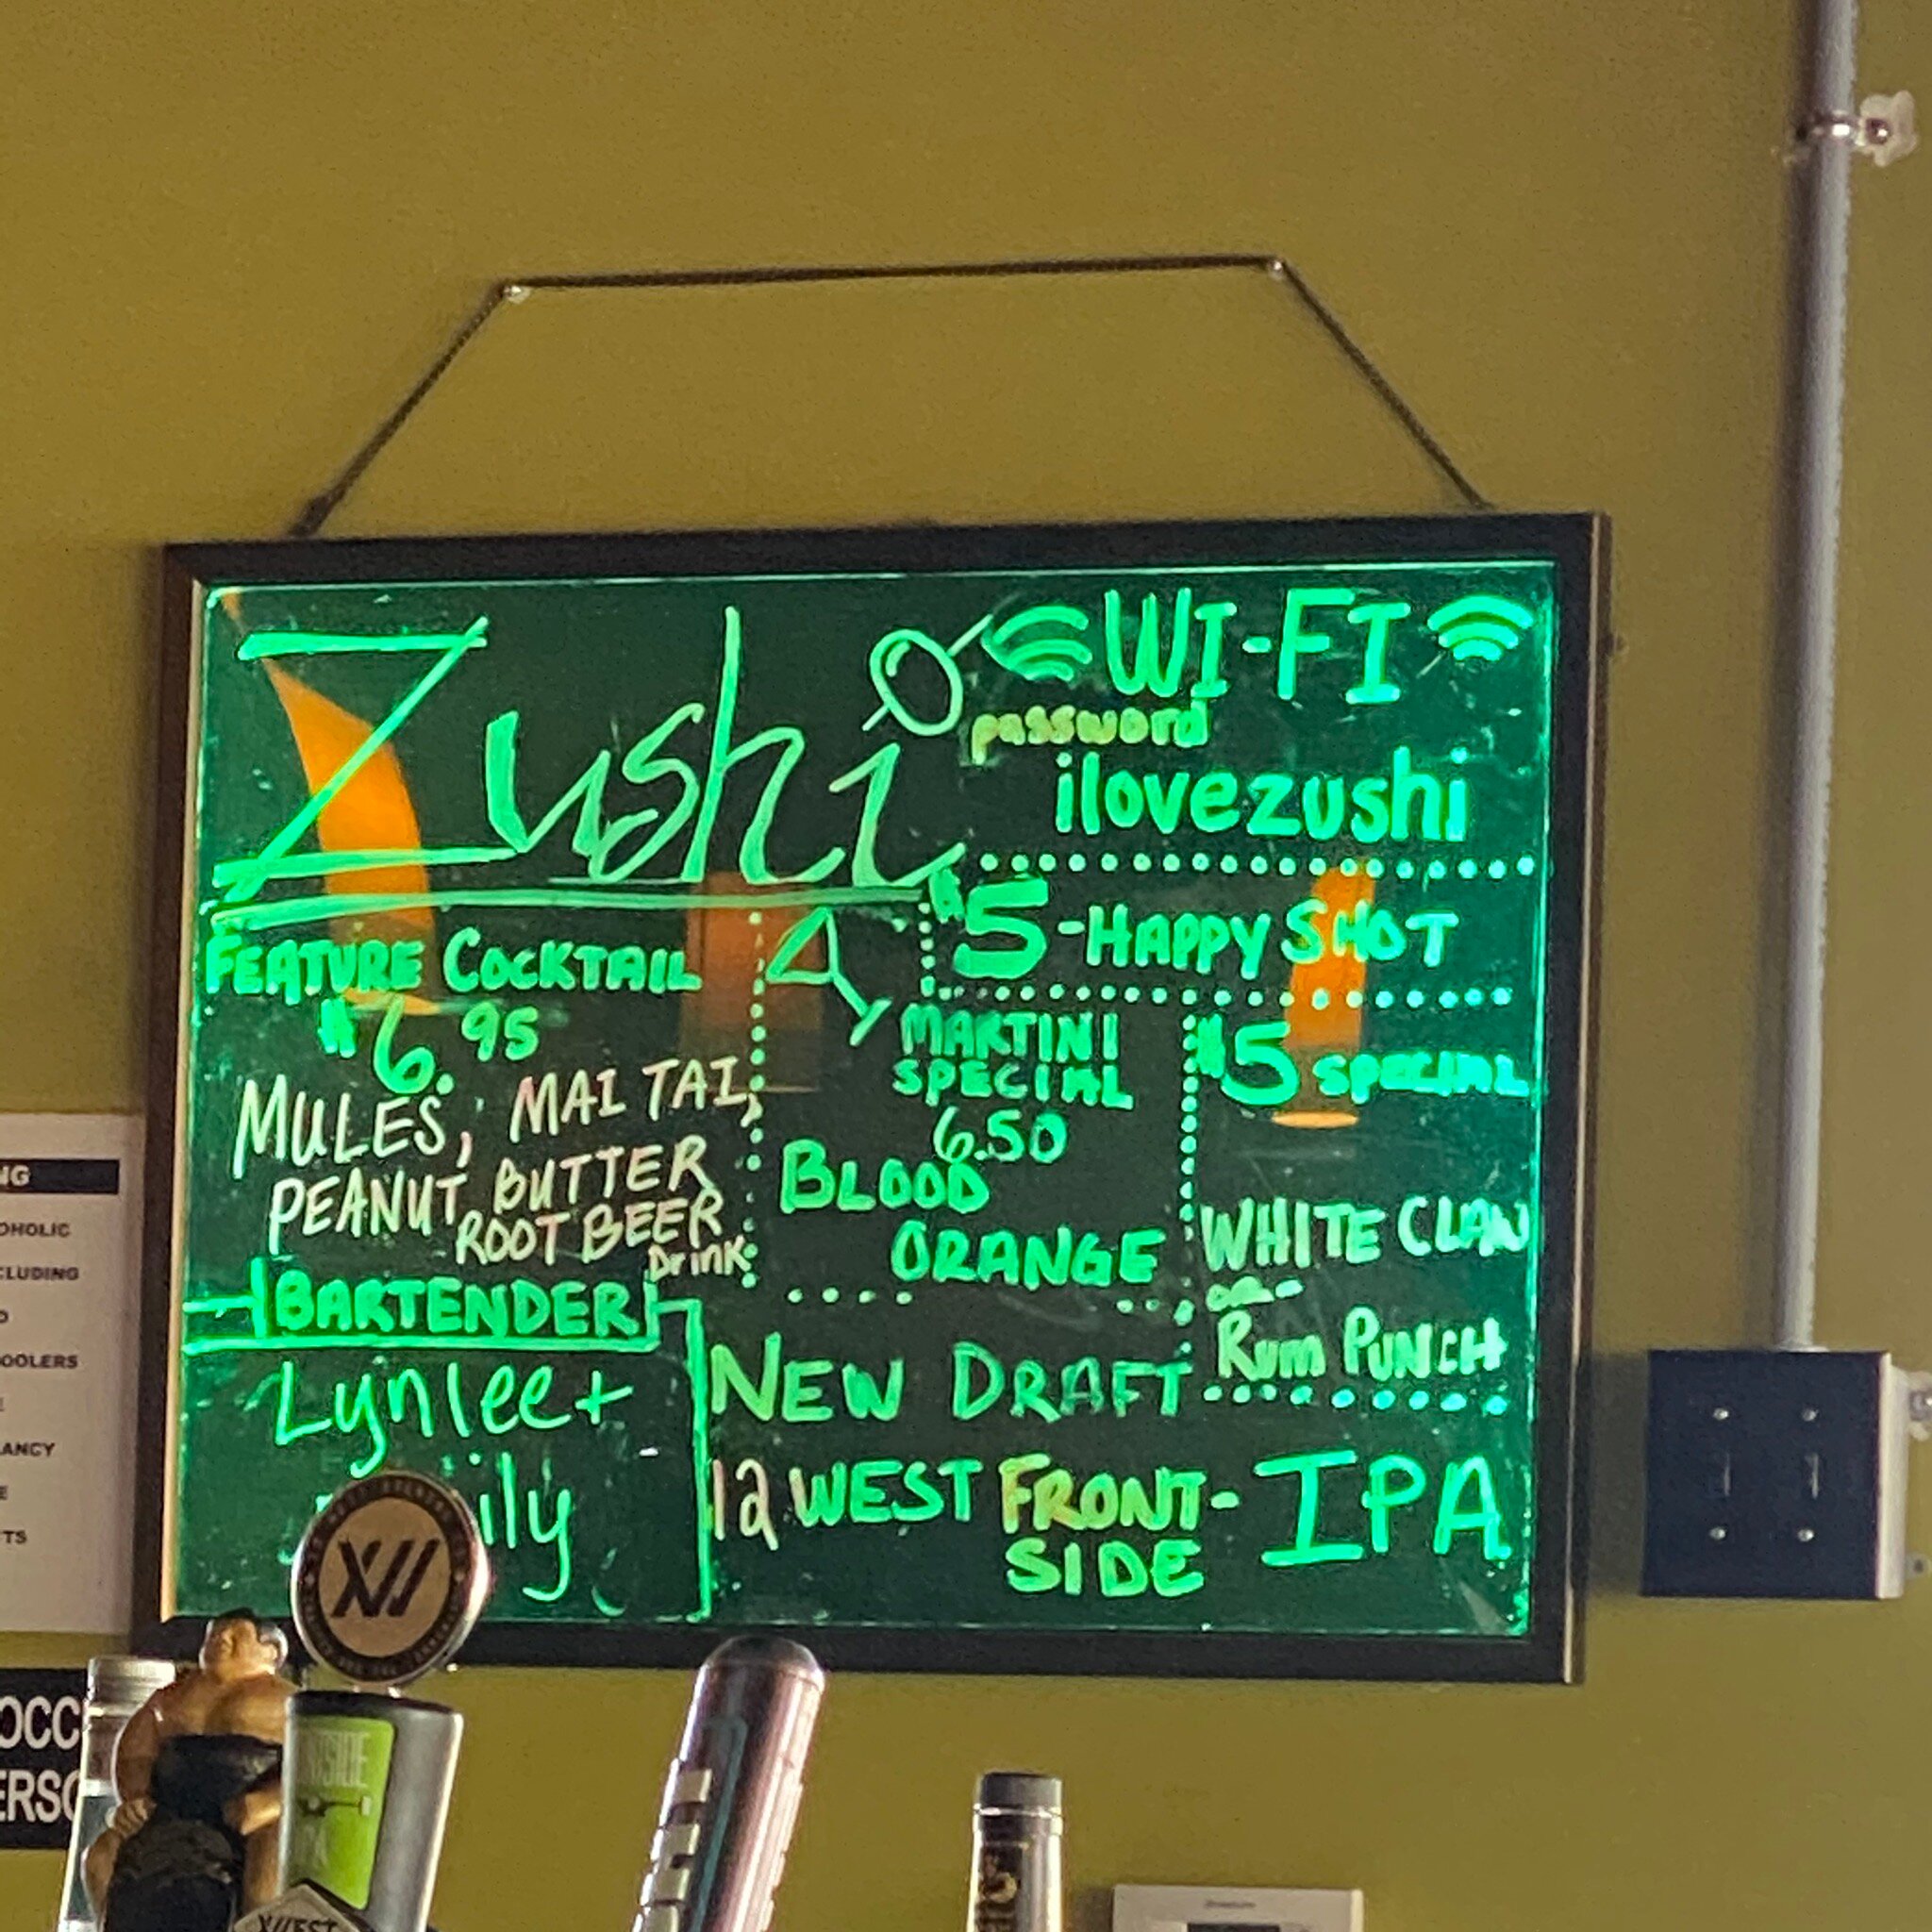 Zushi
WI-FI
password
ilovezushi
$5-HAPPY SHOT
FEATURE COCKTAIL
$6.95
MULES, MAI TAI,
PEANUT BUTTER
ROOT BEER
Drink
MARTINI
SPECIAL
6.50
BLOOD
ORANGE
$5 SPECIAL
WHITE CLAW
or
RUM PUNCH
BARTENDER
Lynlee +
ily
NEW DRAFT
12 WEST FRONT-
SIDE
IPA
NG
OHOLIC
CLUDING
OOLERS
ANCY
E
TS
OCC
ERSO
XII
WEST